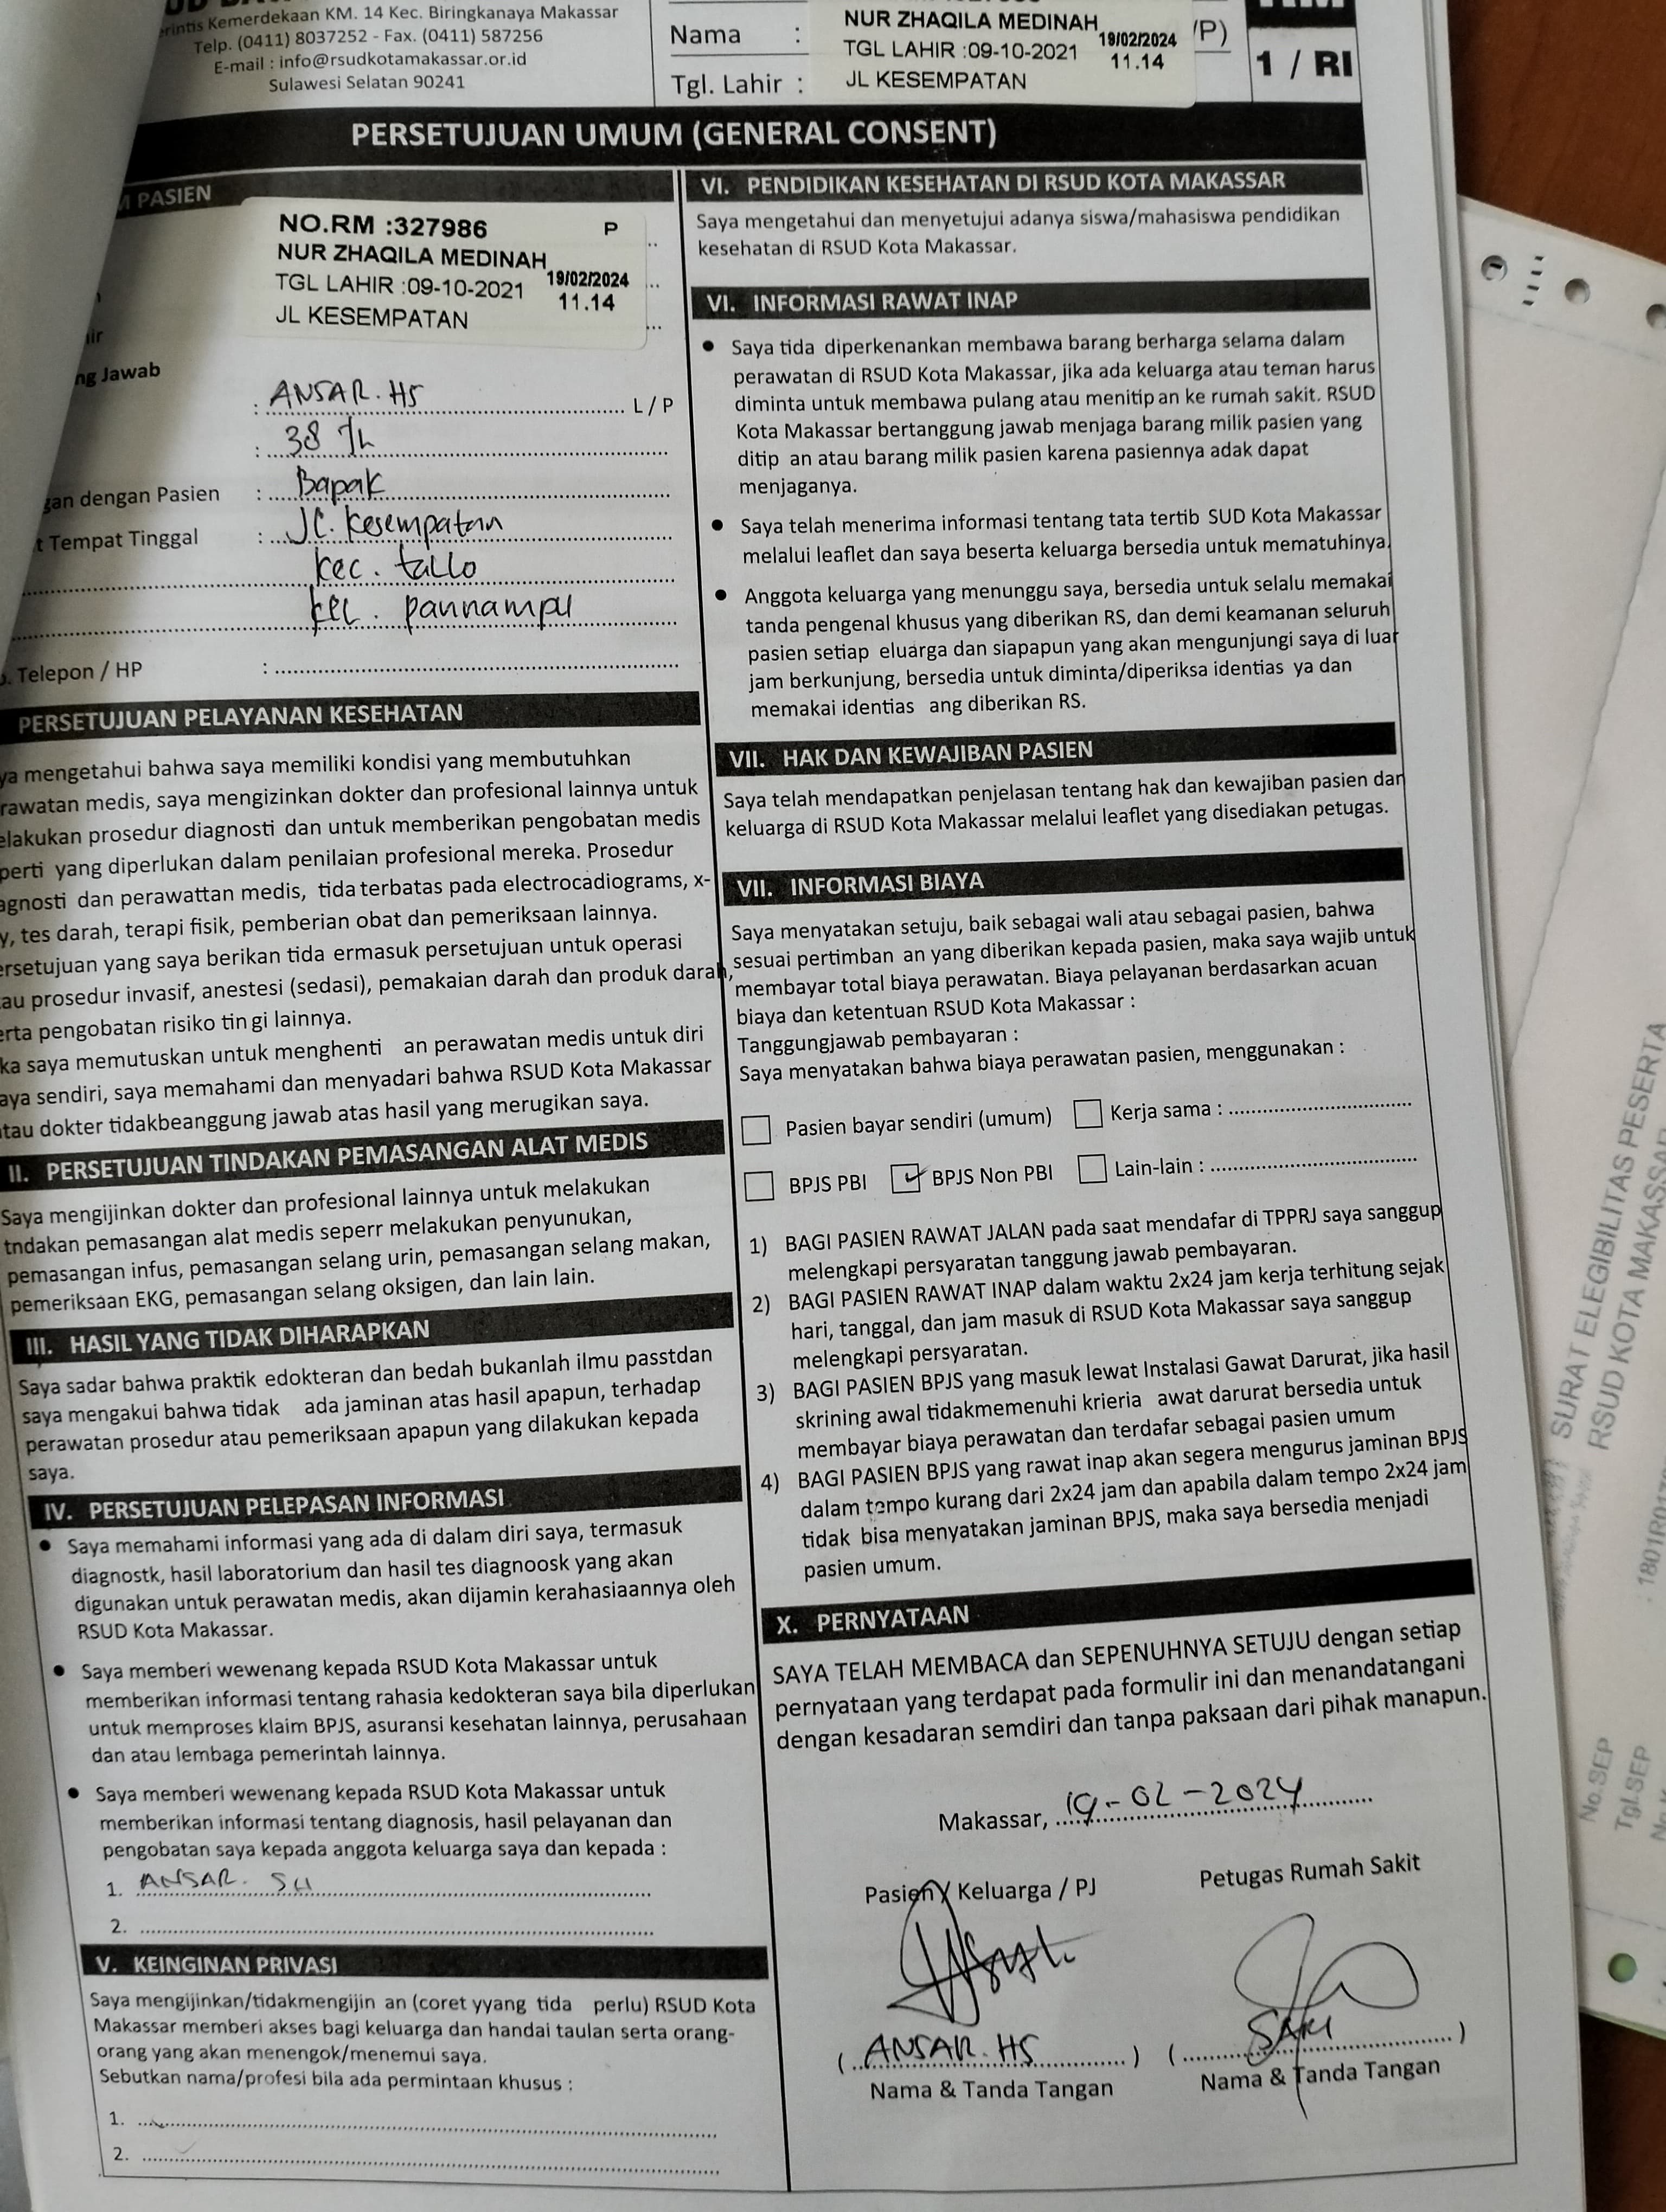 Kemerdekaan KM. 14 Kec. Biringkanaya Makassar
Telp. (0411) 8037252 - Fax. (0411) 587256
E-mail : info@rsudkotamakassar.or.id
Sulawesi Selatan 90241
Nama :
NUR ZHAQILA MEDINAH
TGL LAHIR :09-10-2021
19/02/2024
11.14
JL KESEMPATAN
/P)
Tgl. Lahir :
1 / RI
PERSETUJUAN UMUM (GENERAL CONSENT)
PASIEN
NO.RM :327986 P
NUR ZHAQILA MEDINAH
TGL LAHIR :09-10-2021
19/02/2024
11.14
JL KESEMPATAN
ng Jawab
: ANSAR. HS L / P
: 38 Th
gan dengan Pasien : Bapak
t Tempat Tinggal : Jl. Kesempatan
kec. tallo
kel. pannampu
. Telepon / HP :
PERSETUJUAN PELAYANAN KESEHATAN
ya mengetahui bahwa saya memiliki kondisi yang membutuhkan
rawatan medis, saya mengizinkan dokter dan profesional lainnya untuk
elakukan prosedur diagnosti dan untuk memberikan pengobatan medis
perti yang diperlukan dalam penilaian profesional mereka. Prosedur
agnosti dan perawattan medis, tida terbatas pada electrocadiograms, x-
y, tes darah, terapi fisik, pemberian obat dan pemeriksaan lainnya.
ersetujuan yang saya berikan tida ermasuk persetujuan untuk operasi
au prosedur invasif, anestesi (sedasi), pemakaian darah dan produk darah,
erta pengobatan risiko tin gi lainnya.
ka saya memutuskan untuk menghenti an perawatan medis untuk diri
aya sendiri, saya memahami dan menyadari bahwa RSUD Kota Makassar
tau dokter tidakbeanggung jawab atas hasil yang merugikan saya.
II. PERSETUJUAN TINDAKAN PEMASANGAN ALAT MEDIS
Saya mengijinkan dokter dan profesional lainnya untuk melakukan
tndakan pemasangan alat medis seperr melakukan penyunukan,
pemasangan infus, pemasangan selang urin, pemasangan selang makan,
pemeriksaan EKG, pemasangan selang oksigen, dan lain lain.
III. HASIL YANG TIDAK DIHARAPKAN
Saya sadar bahwa praktik edokteran dan bedah bukanlah ilmu passtdan
saya mengakui bahwa tidak ada jaminan atas hasil apapun, terhadap
perawatan prosedur atau pemeriksaan apapun yang dilakukan kepada
saya.
IV. PERSETUJUAN PELEPASAN INFORMASI
• Saya memahami informasi yang ada di dalam diri saya, termasuk
diagnostk, hasil laboratorium dan hasil tes diagnoosk yang akan
digunakan untuk perawatan medis, akan dijamin kerahasiaannya oleh
RSUD Kota Makassar.
• Saya memberi wewenang kepada RSUD Kota Makassar untuk
memberikan informasi tentang rahasia kedokteran saya bila diperlukan
untuk memproses klaim BPJS, asuransi kesehatan lainnya, perusahaan
dan atau lembaga pemerintah lainnya.
• Saya memberi wewenang kepada RSUD Kota Makassar untuk
memberikan informasi tentang diagnosis, hasil pelayanan dan
pengobatan saya kepada anggota keluarga saya dan kepada :
1. ANSAR. SH
2.
V. KEINGINAN PRIVASI
Saya mengijinkan/tidakmengijin an (coret yyang tida perlu) RSUD Kota
Makassar memberi akses bagi keluarga dan handai taulan serta orang-
orang yang akan menengok/menemui saya.
Sebutkan nama/profesi bila ada permintaan khusus :
1.
2.
VI. PENDIDIKAN KESEHATAN DI RSUD KOTA MAKASSAR
Saya mengetahui dan menyetujui adanya siswa/mahasiswa pendidikan
kesehatan di RSUD Kota Makassar.
VI. INFORMASI RAWAT INAP
• Saya tida diperkenankan membawa barang berharga selama dalam
perawatan di RSUD Kota Makassar, jika ada keluarga atau teman harus
diminta untuk membawa pulang atau menitip an ke rumah sakit. RSUD
Kota Makassar bertanggung jawab menjaga barang milik pasien yang
ditip an atau barang milik pasien karena pasiennya adak dapat
menjaganya.
• Saya telah menerima informasi tentang tata tertib SUD Kota Makassar
melalui leaflet dan saya beserta keluarga bersedia untuk mematuhinya.
• Anggota keluarga yang menunggu saya, bersedia untuk selalu memakai
tanda pengenal khusus yang diberikan RS, dan demi keamanan seluruh
pasien setiap eluarga dan siapapun yang akan mengunjungi saya di luar
jam berkunjung, bersedia untuk diminta/diperiksa identias ya dan
memakai identias ang diberikan RS.
VII. HAK DAN KEWAJIBAN PASIEN
Saya telah mendapatkan penjelasan tentang hak dan kewajiban pasien dan
keluarga di RSUD Kota Makassar melalui leaflet yang disediakan petugas.
VII. INFORMASI BIAYA
Saya menyatakan setuju, baik sebagai wali atau sebagai pasien, bahwa
sesuai pertimban an yang diberikan kepada pasien, maka saya wajib untuk
membayar total biaya perawatan. Biaya pelayanan berdasarkan acuan
biaya dan ketentuan RSUD Kota Makassar :
Tanggungjawab pembayaran :
Saya menyatakan bahwa biaya perawatan pasien, menggunakan :
Pasien bayar sendiri (umum) Kerja sama :
BPJS PBI ✓ BPJS Non PBI Lain-lain :
1) BAGI PASIEN RAWAT JALAN pada saat mendafar di TPPRJ saya sanggup
melengkapi persyaratan tanggung jawab pembayaran.
2) BAGI PASIEN RAWAT INAP dalam waktu 2x24 jam kerja terhitung sejak
hari, tanggal, dan jam masuk di RSUD Kota Makassar saya sanggup
melengkapi persyaratan.
3) BAGI PASIEN BPJS yang masuk lewat Instalasi Gawat Darurat, jika hasil
skrining awal tidakmemenuhi krieria awat darurat bersedia untuk
membayar biaya perawatan dan terdafar sebagai pasien umum
4) BAGI PASIEN BPJS yang rawat inap akan segera mengurus jaminan BPJS
dalam tempo kurang dari 2x24 jam dan apabila dalam tempo 2x24 jam
tidak bisa menyatakan jaminan BPJS, maka saya bersedia menjadi
pasien umum.
X. PERNYATAAN
SAYA TELAH MEMBACA dan SEPENUHNYA SETUJU dengan setiap
pernyataan yang terdapat pada formulir ini dan menandatangani
dengan kesadaran semdiri dan tanpa paksaan dari pihak manapun.
Makassar, 19-02-2024
Pasien / Keluarga / PJ Petugas Rumah Sakit
( ANSAR. HS ) ( )
Nama & Tanda Tangan Nama & Tanda Tangan
SURAT ELEGIBILITAS PESERTA
RSUD KOTA MAKASSAR
No.SEP
Tgl.SEP